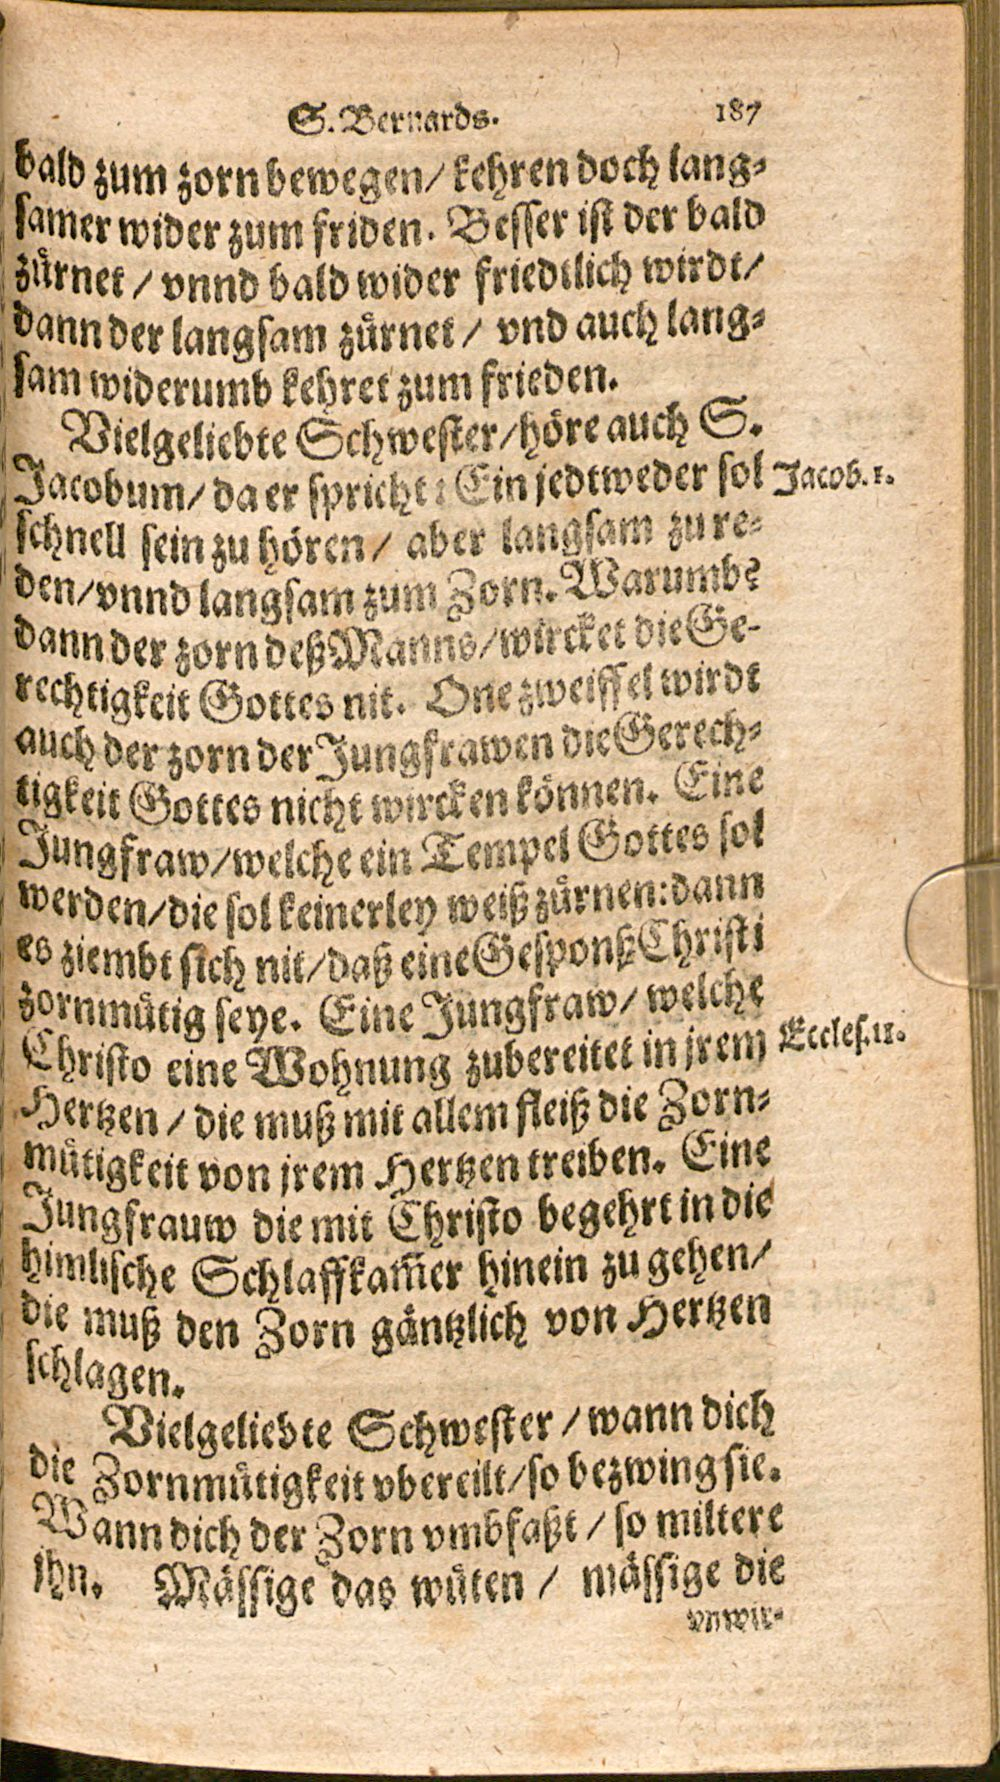 S. Bernards. 187
bald zum zorn bewegen / kehren doch lang-
samer wider zum friden. Besser ist der bald
zürnet / vnnd bald wider friedtlich wirdt /
dann der langsam zürnet / vnd auch lang-
sam widerumb kehret zum frieden.
Vielgeliebte Schwester / höre auch S.
Jacobum / da er spricht: Ein jedtweder sol Jacob. 1.
schnell sein zu hören / aber langsam zu re-
den / vnnd langsam zum Zorn. Warumb?
dann der zorn deß Manns / wircket die Ge-
rechtigkeit Gottes nit. One zweiffel wirdt
auch der zorn der Jungfrawen die Gerech-
tigkeit Gottes nicht wircken können. Eine
Jungfraw / welche ein Tempel Gottes sol
werden / die sol keinerley weiß zürnen: dann
es ziembt sich nit / daß eine Gesponß Christi
zornmütig seye. Eine Jungfraw / welche
Christo eine Wohnung zubereitet in jrem Eccles. 11.
Hertzen / die muß mit allem fleiß die Zorn-
mütigkeit von jrem Hertzen treiben. Eine
Jungfrauw die mit Christo begehrt in die
himlische Schlaffkam̄er hinein zu gehen /
die muß den Zorn gäntzlich von Hertzen
schlagen.
Vielgeliebte Schwester / wann dich
die Zornmütigkeit vbereilt / so bezwing sie.
Wann dich der Zorn vmbfaßt / so miltere
jhn. Mässige das wüten / mässige die
vnwir-